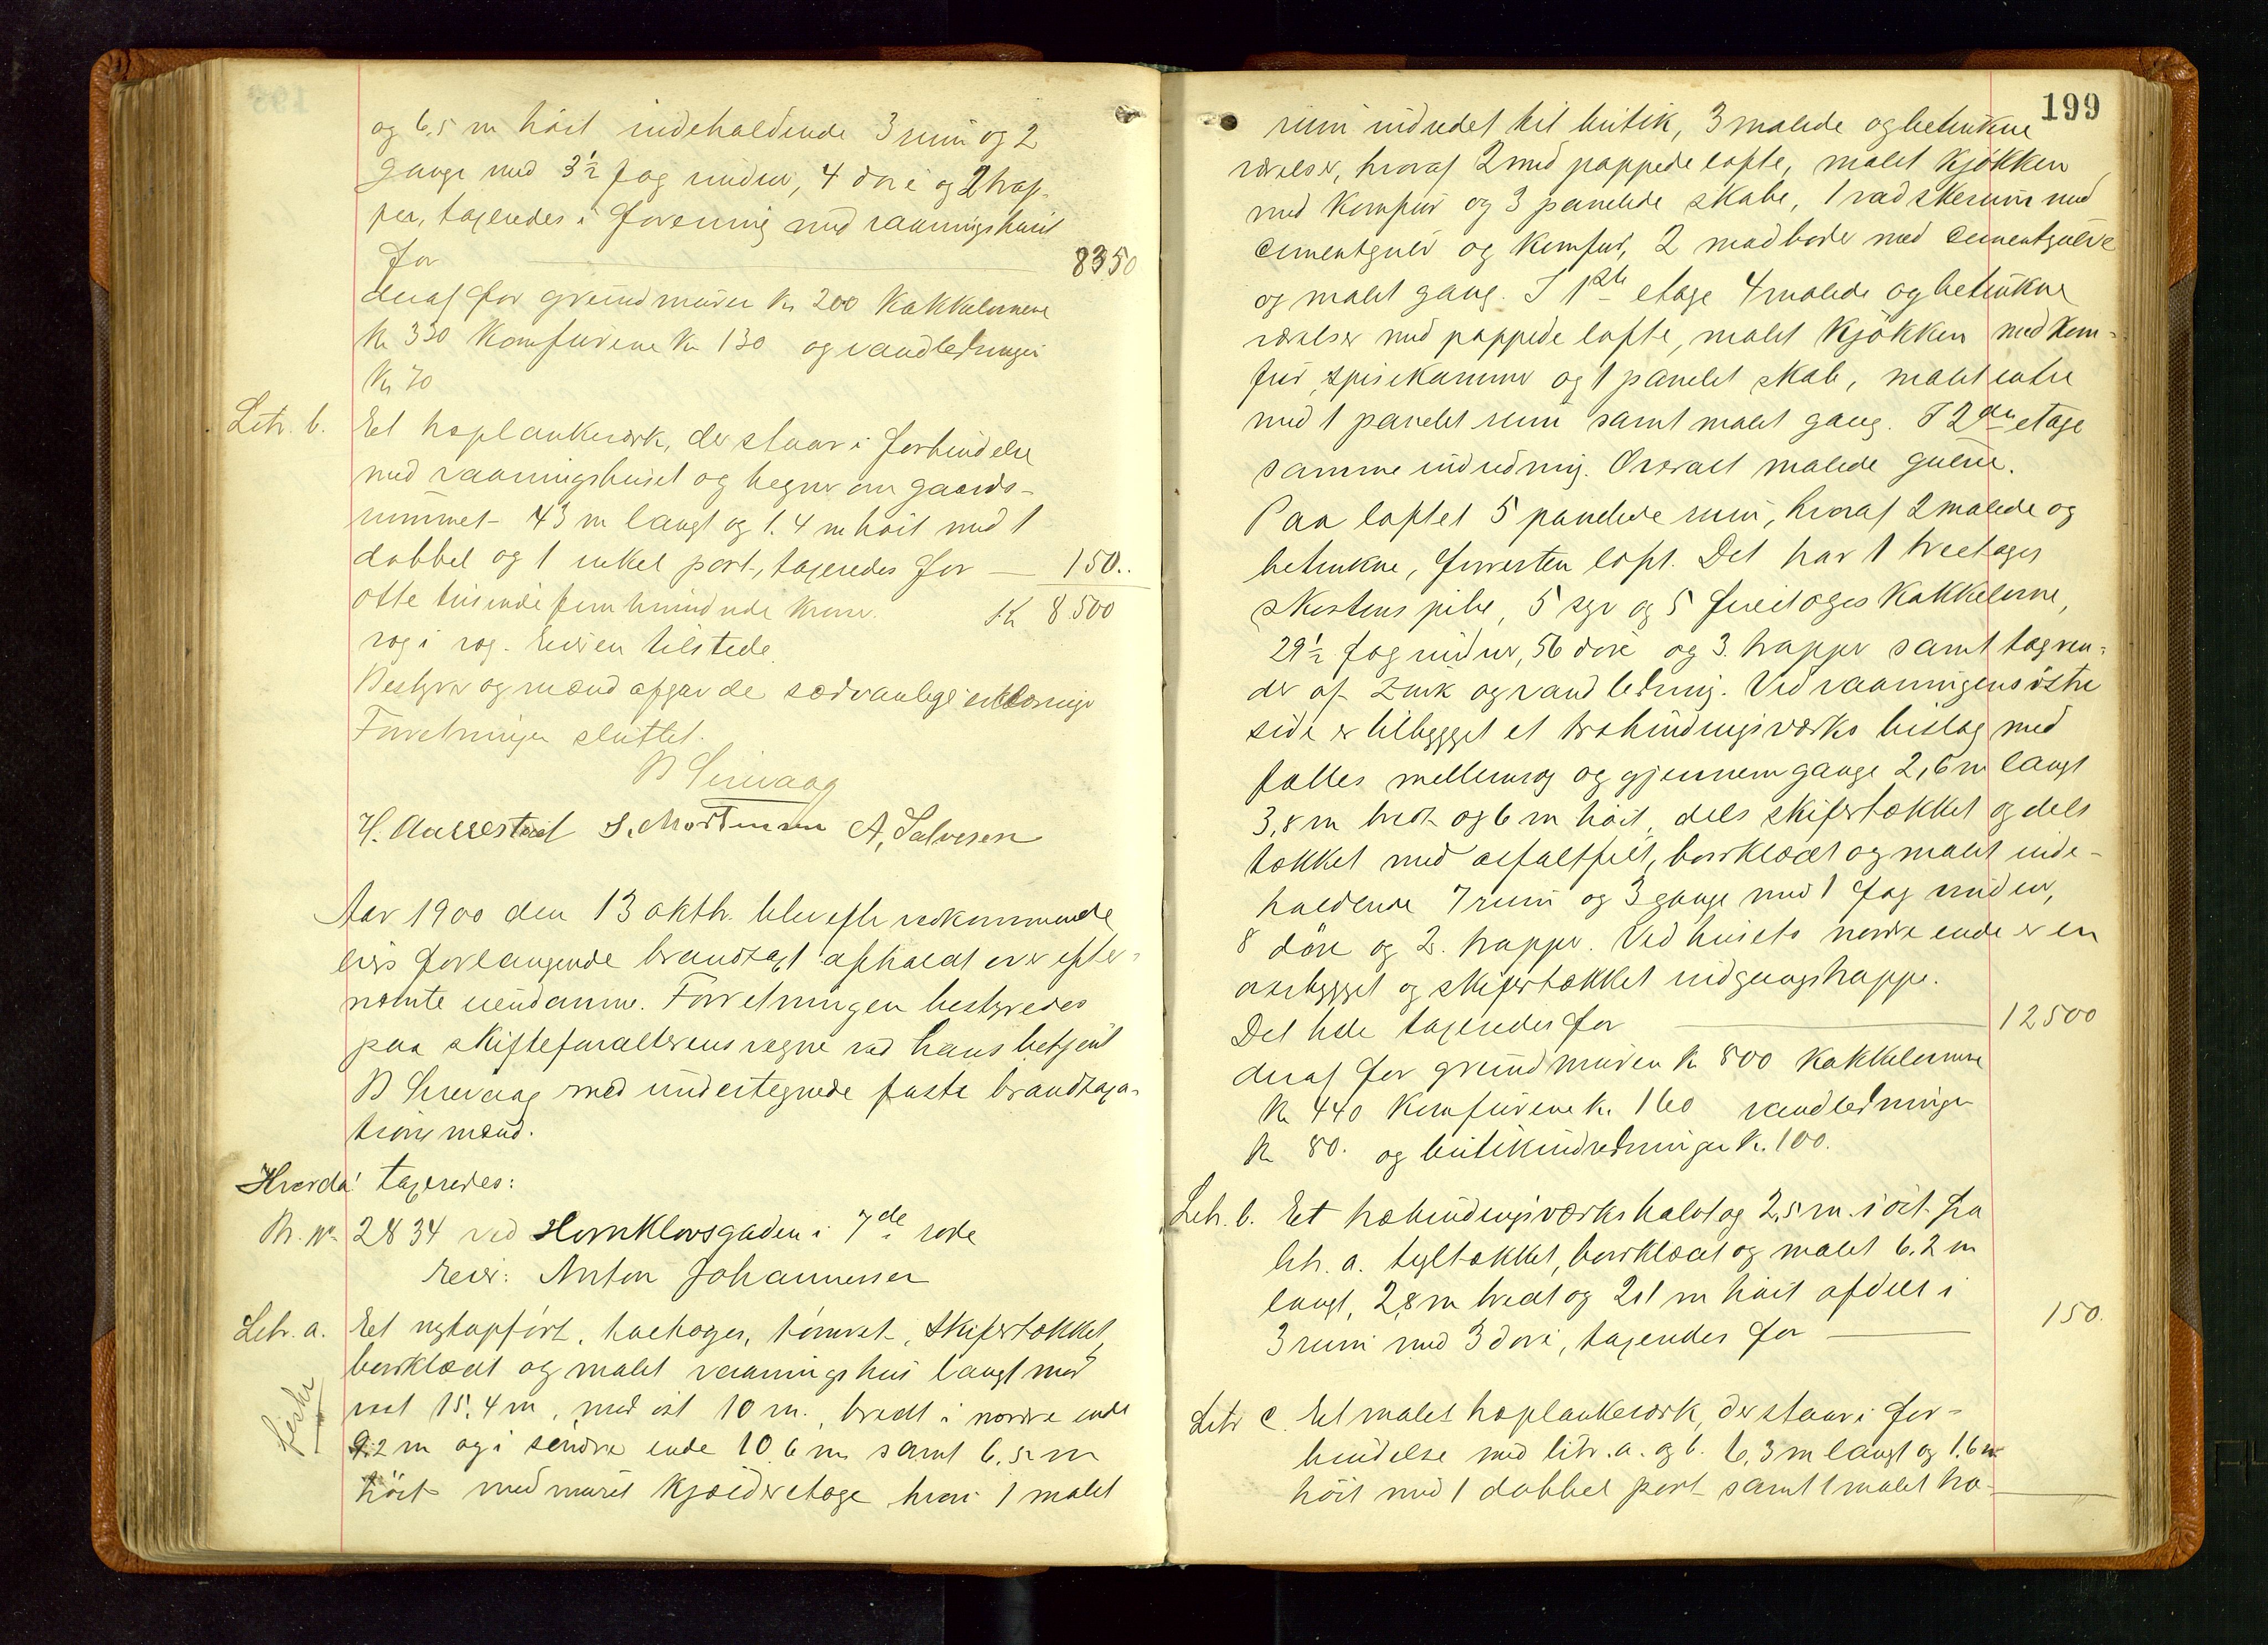 og 6.5 m höit indeholdende 3 rum og 2
gange med 3 1/2 fag vinduer, 4 döre og 2 trap-
per, taxeredes i forening med vaaningshuset
for 8350
deraf for grundmuren Kr 200 Kakkelovnene
Kr 330 Komfurene Kr 130 og vandledningen
Kr 70
Litr. b. Et træplankeværk, der staar i forbindelse
med vaaningshuset og hegner om gaards-
rummet 43 m langt og 1.4 m höit med 1
dobbel og 1 enkel port, taxeredes for 150..
otte tusinde fem hundrede kroner. Kr 8500
Eieren tilstede.
Bestyrer og mænd afgav de sædvanlige erklæringer
Forretningen sluttet.
B Sirevaag
H. Aarrestad S. Mortensen A. Salvesen
Aar 1900 den 13 oktbr. blev efter vedkommende
eiers forlangende brandtaxt afholdt over efter-
nævnte eiendomme. Forretningen bestyredes
paa skifteforvalterens vegne ved hans betjent
B Sirevaag med undertegnede faste brandtaxa-
tionsmænd.
Hvorda taxeredes:
Br. No 2834 ved Hornklovsgaden i 7de rode
Eier: Anton Johannessen
Litr. a. Et nyopfört, toetages, tömret, skifertækket,
bordklædt og malet vaaningshus langt mod
vest 15,4 m, mod öst 10 m., bredt i nordre ende
9.2 m og i söndre ende 10.6 m samt 6.5 m
höit med muret kjælderetage hvori 1 malet
199
rum indredet til butik, 3 malede og betrukne
værelser, hvoraf 2 med pappede lofte, malet kjökken
med komfur og 3 panelede skabe, 1 vadskerum med
cementgulv og komfur, 2 madboder med cementgulve
og malet gang. I 1ste etage 4 malede og betrukne
værelser med pappede lofte, malet kjökken med kom-
fur, spisekammer og 1 panelet skab, malet entre
med 1 panelet rum samt malet gang. I 2den etage
samme indredning. Overalt malede gulve.
Paa loftet 5 panelede rum, hvoraf 2 malede og
betrukne, forresten loft. Det har 1 treetages
skorstenspibe, 5 og 5 fireetages Kakkelovne,
29 1/2 fag vinduer, 56 döre og 3. trapper samt tagren-
der af zink og vandledning. Ved vaaningens östre
side er tilbygget et træbindingsværks bislag med
fælles og gjennemgange 2,6 m langt
3,8 m bredt og 6 m höit, dels skifertækket og dels
tækket med asfaltfilt, bordklædt og malet inde-
holdende 7 rum og 3 gange med 1 fag vinduer,
8 döre og 2. trapper. Ved husets nordre ende er en
overbygget og skifertækket indgangstrappe.
Det hele taxeredes for 12500
deraf for grundmuren Kr 800 Kakkelovnene
Kr 440 Komfurene Kr. 160 vandledningen
Kr 80. og butikindredningen Kr. 100.
Litr. b. Et træbindingsværks halvtag 2,5 m. i öst fra
litr. a. tegltækket, bordklædt og malet 6.2 m
langt, 2,8 m bredt og 2,1 m höit afdelt i
3 rum med 3 döre, taxeredes for 150.
Litr c. Et malet træplankeværk, der staar i for-
bindelse med litr. a. og b. 6,3 m langt og 1.6 m
höit med 1 dobbel port samt 1 malet træ-